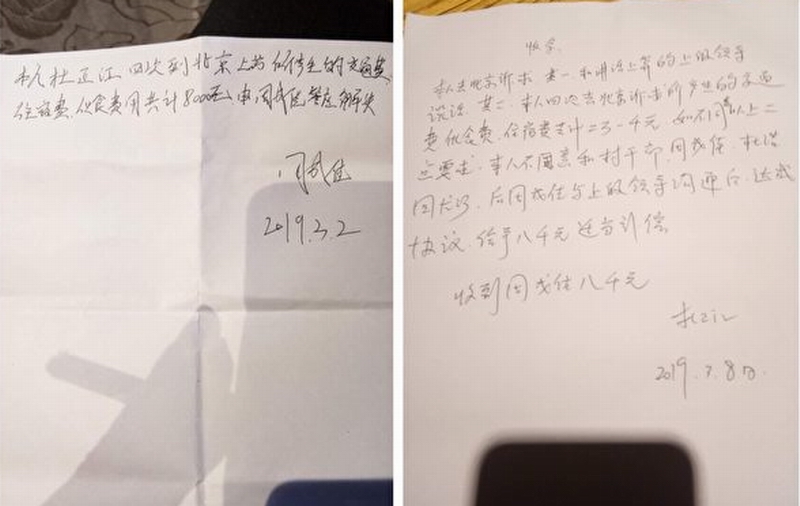 本人杜正江四次到北京上访所发生的交通费
住宿费、伙食费用共计8000元、由周成佳答应解决
周成佳
2019.3.2
收条
本人去北京诉求 其一 和讲话上算的上级领导
谈话 其二 本人四次去北京诉求所产生的交通
费 伙食费、住宿费共计二万一千元 如不同意以上二
点要求、本人不愿意和村干部 周成佳
后周成佳与上级领导沟通后、达成
协议、给予八千元适当补偿
收到周成佳八千元
杜正江
2019.7.8日